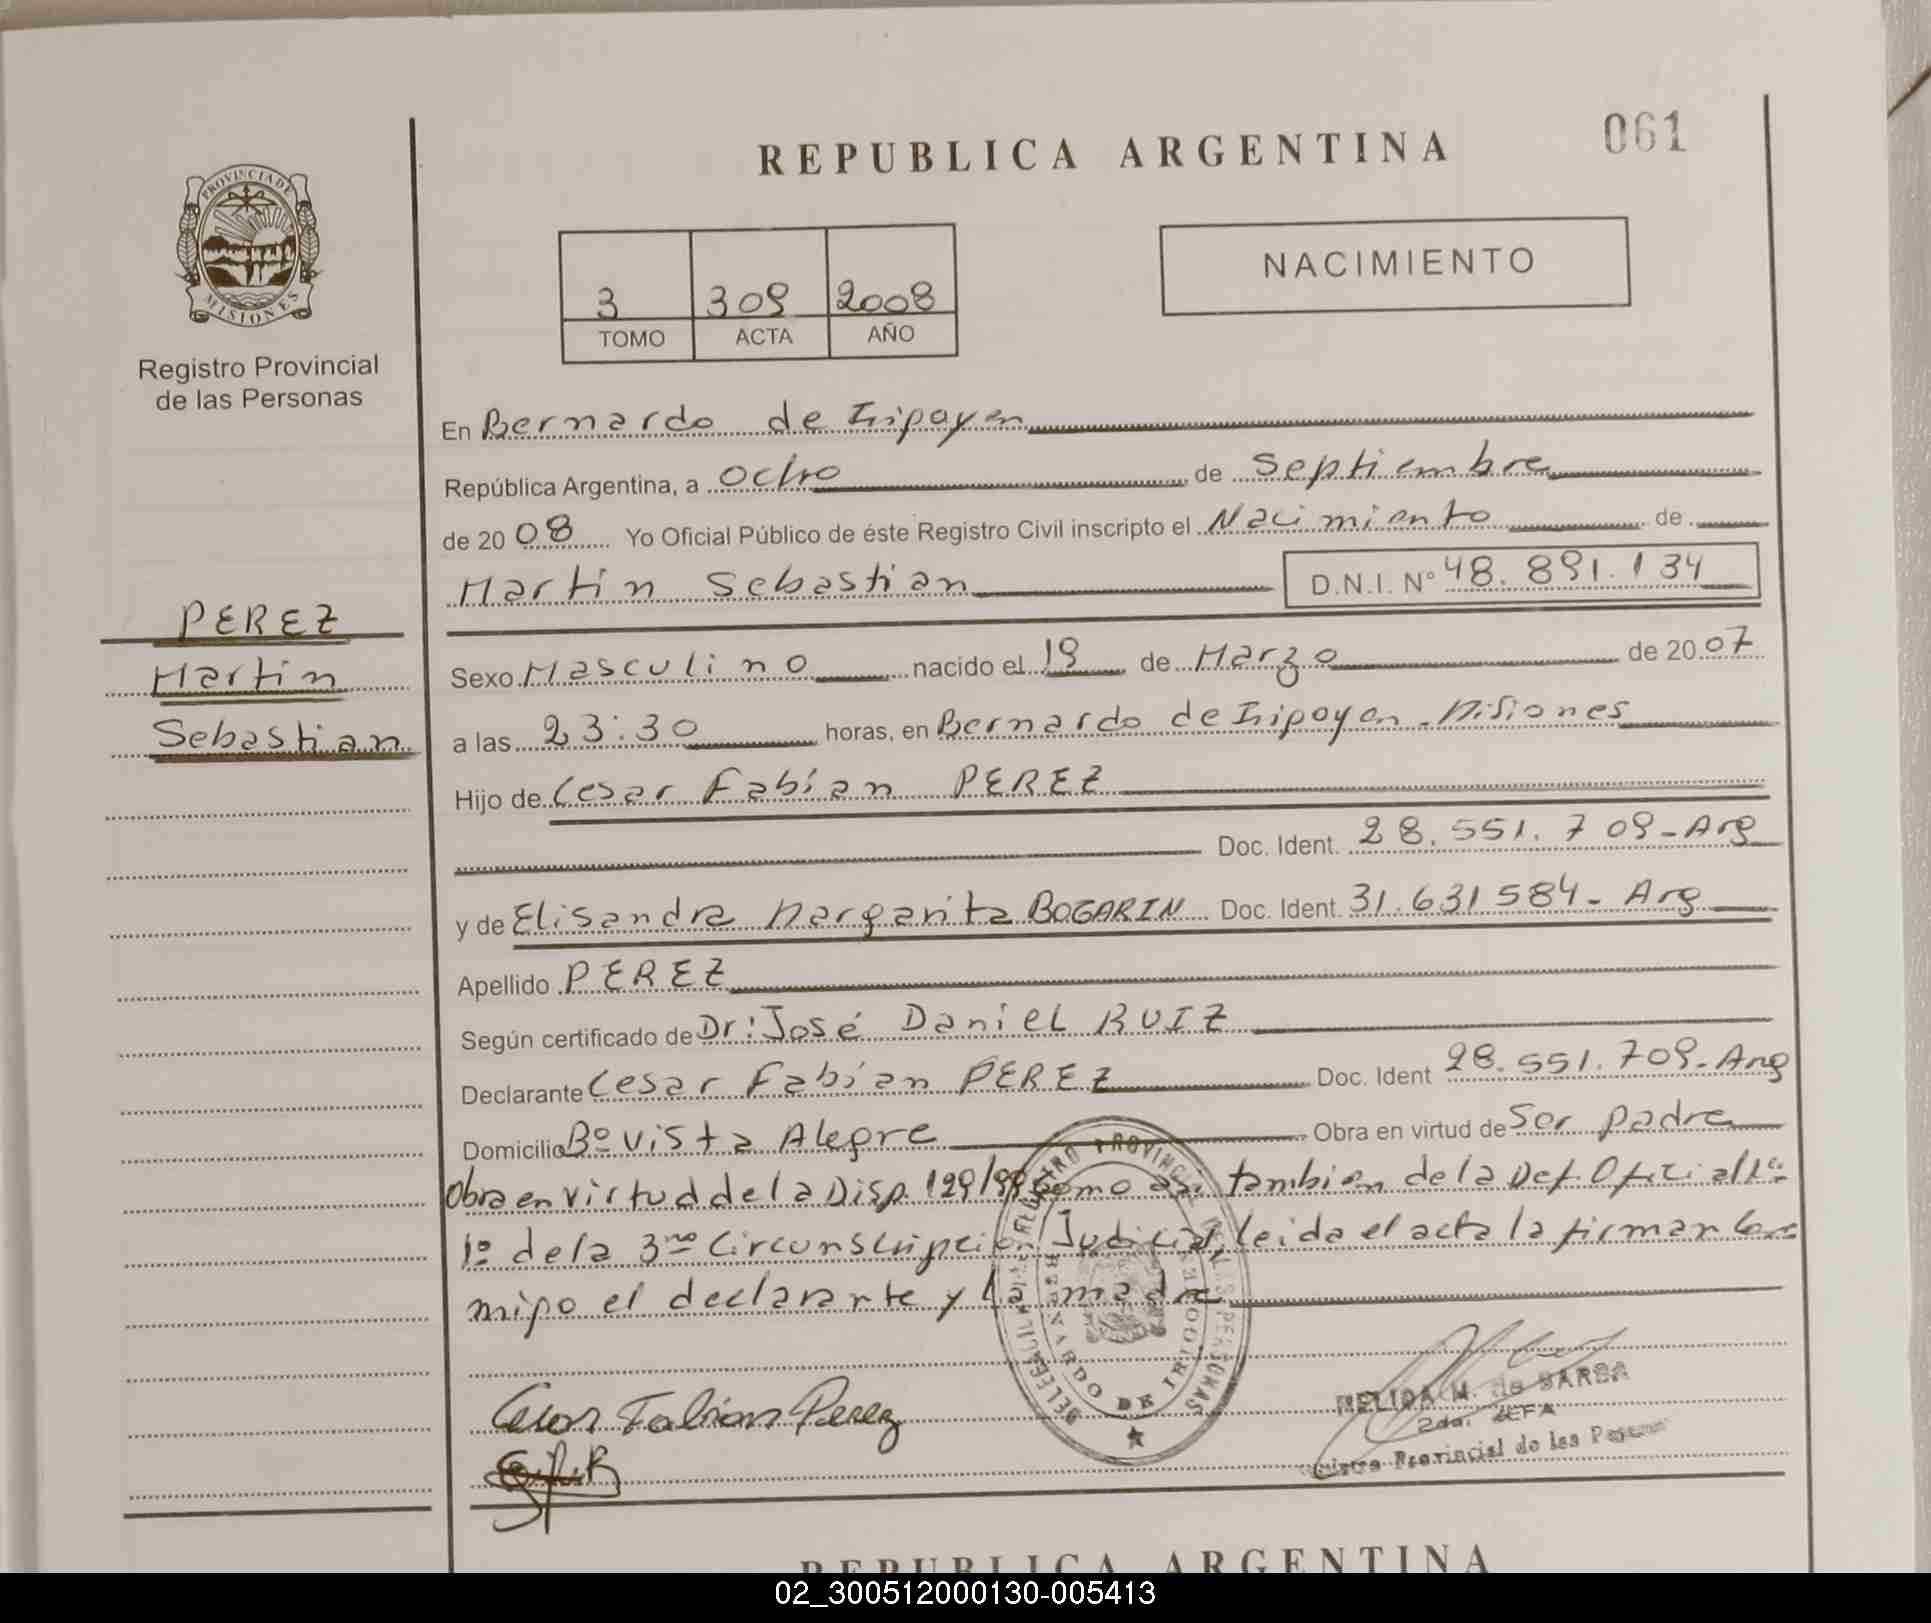 REPUBLICA ARGENTINA
061
PROVINCIA DE
MISIONES
Registro Provincial
de las Personas
NACIMIENTO
3 309 2008
TOMO ACTA AÑO
En Bernardo de Irigoyen
República Argentina, a ocho de Septiembre
de 2008 Yo Oficial Público de éste Registro Civil inscripto el Nacimiento de
Martin Sebastian D.N.I. N° 48.891.134
PEREZ
Martin
Sebastian
Sexo Masculino nacido el 19 de Marzo de 2007
a las 23:30 horas, en Bernardo de Irigoyen - Misiones
Hijo de Cesar Fabián PEREZ
Doc. Ident. 28.551.709-Arg
y de Elisandra Margarita BOGARIN Doc. Ident. 31.631584- Arg
Apellido PEREZ
Según certificado de Dr: José Daniel RUIZ
Declarante Cesar Fabián PEREZ Doc. Ident 28.551.709-Arg
Domicilio Bº Vista Alegre Obra en virtud de Ser padre
Obra en virtud de la Disp. 129/99 como asi tambien de la Def. Oficial
1º de la 3ra Circunscripción Judicial, leida el acta la firman con
migo el declarante y la madre
DELEGACION REGISTRO PROVINCIAL DE LAS PERSONAS
BERNARDO DE IRIGOYEN
Cesar Fabian Perez
NELIDA M. de BARBA
2da. JEFA
Registro Provincial de las Personas
REPUBLICA ARGENTINA
02_300512000130-005413